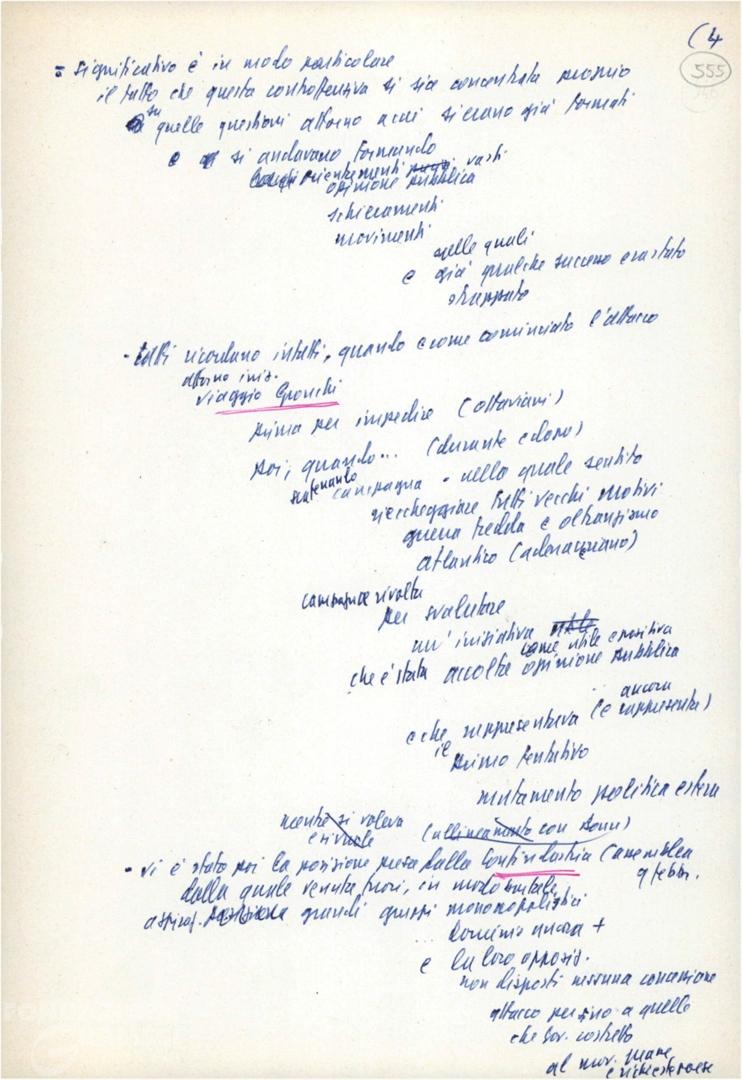 (4
555
= significativo è in modo particolare
il fatto che questa controffensiva si sia concentrata proprio
su quelle questioni attorno a cui si erano già formati
e si andavano formando
orientamenti vasti
opinione pubblica
schieramenti
movimenti
nelle quali
e già qualche successo era stato
strappato
- tutti ricordano infatti, quando e come cominciato l'attacco
attorno iniz.
viaggio Gronchi
prima per impedire (Ottaviani)
poi, quando... (durante e dopo)
scatenando
campagna - nella quale sentito
riecheggiare tutti vecchi motivi
guerra fredda e oltranzismo
atlantico (adenaueriano)
campagna rivolta
per svalutare
un' iniziativa
come utile e positiva
che è stata accolta opinione pubblica
ancora
e che rappresentava (e rappresenta)
il primo tentativo
mutamento politica estera
mentre si voleva
e si vuole (allineamento con Bonn)
- vi è stata poi la posizione presa dalla Confindustria (assemblea
9 febbr.
dalla quale venuta fuori, in modo brutale,
aspiraz. grandi gruppi monopolistici
... dominio ancora +
e la loro opposiz.
non disposti nessuna concessione
attacco persino a quelle
che Gov. costretto
al mov. mare
e richieste paese